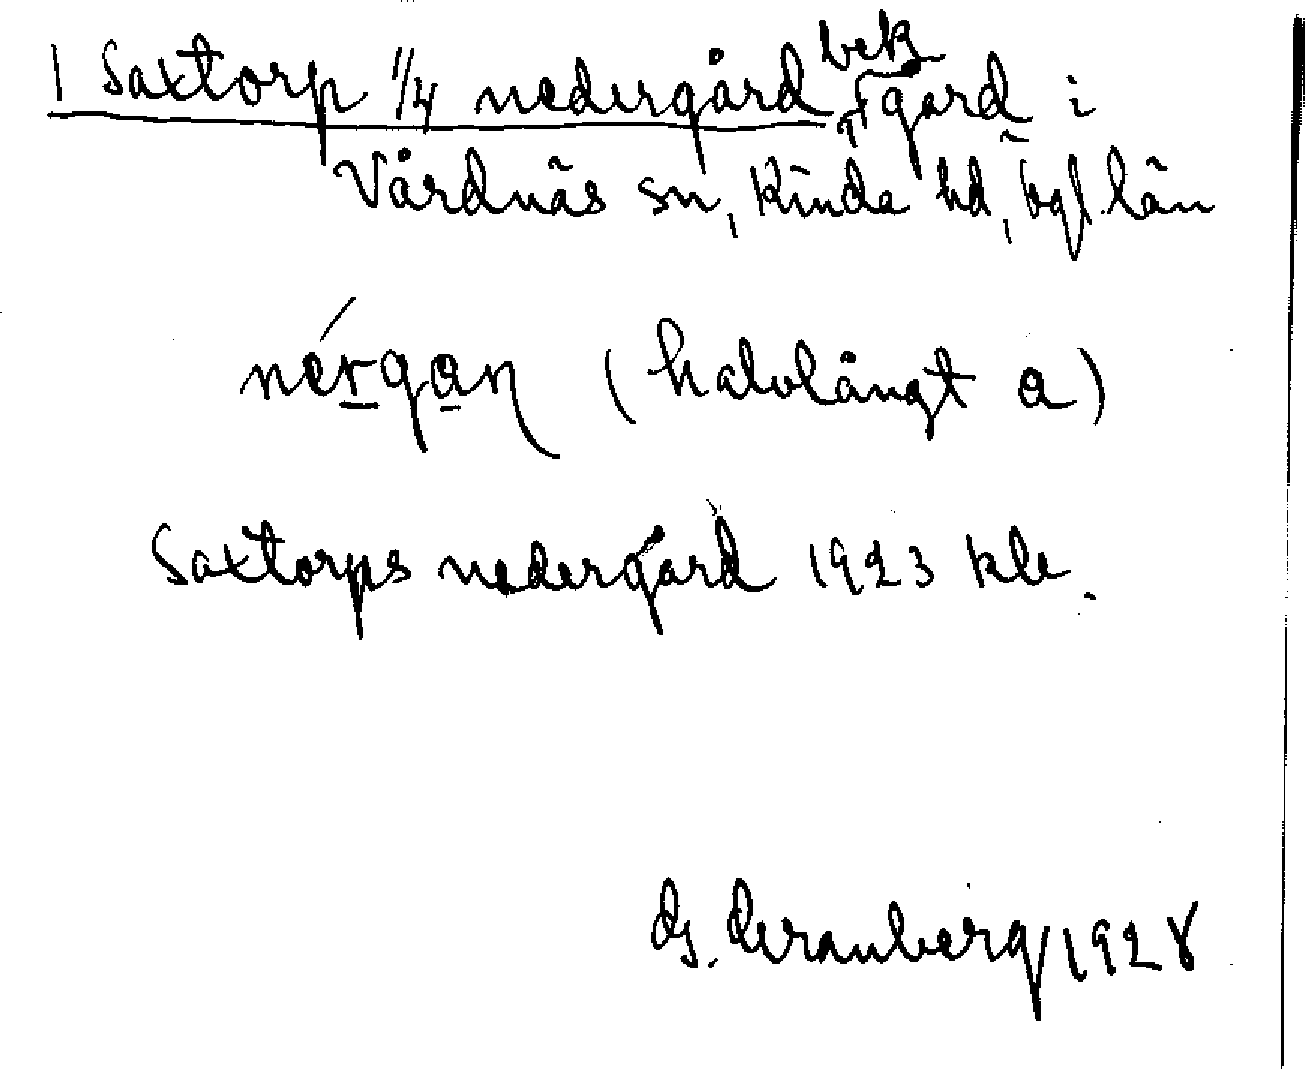 1 Saxtorp 1/4 nedergård bek gård i
Vårdnäs sn, Kinda hd, Ögl. län
nérgaɳ (halvlångt a)
Saxtorps nedergård 1923 kle.
G. Granberg 1928